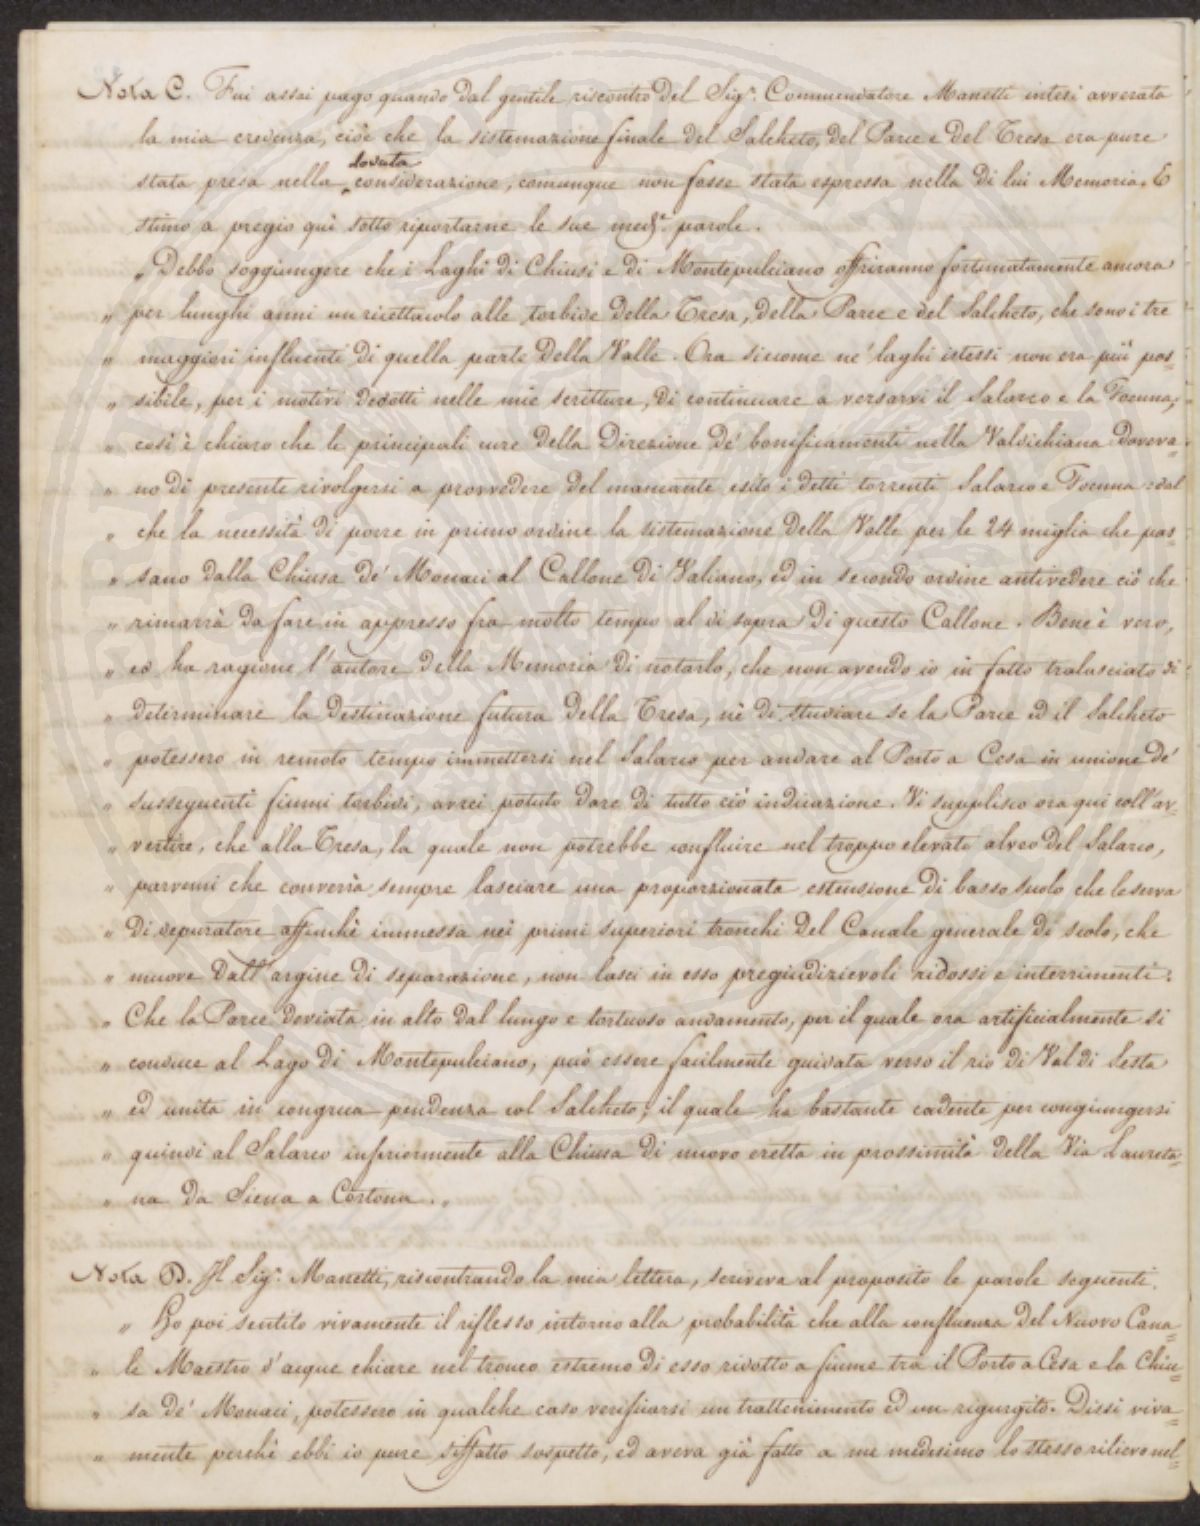 Nota C. Fui assai pago quando dal gentile riscontro del Sigr. Commendatore Manetti intesi avverata
la mia credenza, cioè che la sistemazione finale del Salcheto, del Parce e del Tresa era pure
dovuta
stata presa nella considerazione, comunque non fosse stata espressa nella di lui Memoria. E
stimo a pregio quì sotto riportarne le sue medse. parole.
„ Debbo soggiungere che i Laghi di Chiusi e di Montepulciano offriranno fortunatamente ancora
„ per lunghi anni un ricettacolo alle torbide della Tresa, della Parce e del Salcheto, che sono i tre
„ maggiori influenti di quella parte della Valle. Ora siccome ne' laghi istessi non era più pos=
„ sibile, per i motivi dedotti nelle mie scritture, di continuare a versarvi il Salarco e la Foenna,
„ così è chiaro che le principali cure della Direzione de' bonificamenti nella Valdichiana doveva=
„ no di presente rivolgersi a provvedere del mancante esito i detti torrenti Salarco e Foenna: dal
„ che la necessità di porre in primo ordine la sistemazione della Valle per le 24 miglia che pas=
„ sano dalla Chiusa de' Monaci al Callone di Valiano, ed in secondo ordine antivedere ciò che
„ rimarrà da fare in appresso fra molto tempo al di sopra di questo Callone. Bene è vero,
„ ed ha ragione l'autore della Memoria di notarlo, che non avendo io in fatto tralasciato di
„ determinare la destinazione futura della Tresa, nè di studiare se la Parce ed il Salcheto
„ potessero in remoto tempo immettersi nel Salarco per andare al Porto a Cesa in unione de'
„ susseguenti fiumi torbidi, avrei potuto dare di tutto ciò indicazione. Vi supplisco ora qui coll'av=
„ vertire, che alla Tresa, la quale non potrebbe confluire nel troppo elevato alveo del Salarco,
„ parvemi che converrà sempre lasciare una proporzionata estensione di basso suolo che le serva
„ di depuratore affinchè immessa nei primi superiori tronchi del Canale generale di scolo, che
„ muove dall'argine di separazione, non lasci in esso pregiudizievoli ridossi e interrimenti:
„ Che la Parce deviata in alto dal lungo e tortuoso andamento, per il quale ora artificialmente si
„ conduce al Lago di Montepulciano, può essere facilmente guidata verso il rio di Val di Sesta
„ ed unita in congrua pendenza col Salcheto, il quale ha bastante cadente per congiungersi
„ quindi al Salarco inferiormente alla Chiusa di nuovo eretta in prossimità della Via Laureta=
„ na da Siena a Cortona. „
Nota D. Il Sigr. Manetti, riscontrando la mia lettera, scriveva al proposito le parole seguenti.
„ Ho poi sentito vivamente il riflesso intorno alla probabilità che alla confluenza del Nuovo Cana=
„ le Maestro d'acque chiare nel tronco estremo di esso ridotto a fiume tra il Porto a Cesa e la Chiu=
„ sa de' Monaci, potessero in qualche caso verificarsi un trattenimento ed un rigurgito. Dissi viva=
„ mente perchè ebbi io pure siffatto sospetto, ed aveva già fatto a me medesimo lo stesso rilievo nel=